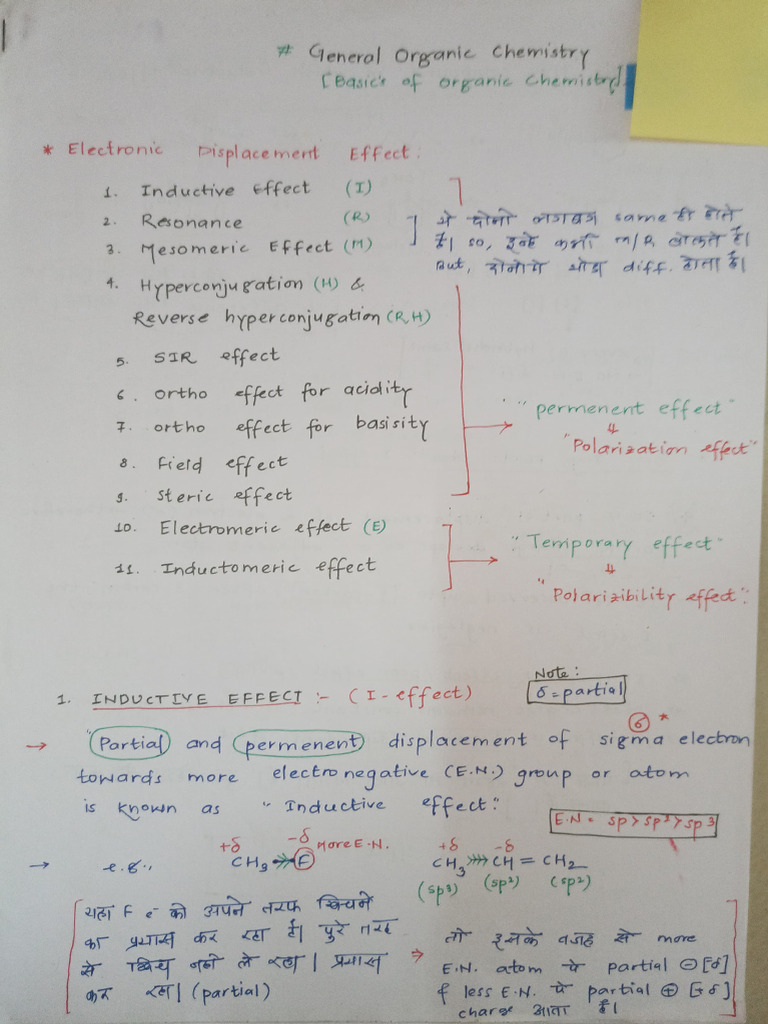 # General Organic Chemistry
[Basic's of organic Chemistry]
* Electronic Displacement Effect:
1. Inductive Effect (I)
2. Resonance (R)
3. Mesomeric Effect (M)
ये दोनो लगबग same ही होते
है। so, इन्हे कभी m/R बोलते है।
But, दोनोमे थोडा diff. होता है।
4. Hyperconjugation (H) &
Reverse hyperconjugation (RH)
5. SIR effect
6. ortho effect for acidity
7. ortho effect for basisity
8. Field effect
9. steric effect
"permenent effect"
⇓
"Polarization effect"
10. Electromeric effect (E)
11. Inductomeric effect
"Temporary effect"
⇓
"Polarizibility effect".
Note:
δ = partial
1. INDUCTIVE EFFECT :- (I-effect)
→ "Partial and permenent displacement of sigma electron
σ *
towards more electronegative (E.N.) group or atom
is known as "Inductive effect".
E.N = sp > sp² > sp3
+δ -δ More E.N. +δ -δ
→ e.g., CH3 F CH3 CH = CH2
(sp3) (sp2) (sp2)
यहा F e⁻ को अपने तरफ खिचने
का प्रयास कर रहा है। पुरे तरह
से खिच नही ले रहा। प्रयास
कर रहा। (partial)
⇒ तो इसके वजह से more
E.N. atom पे partial ⊖ [-δ]
& less E.N. पे partial ⊕ [+δ]
charge आता है।